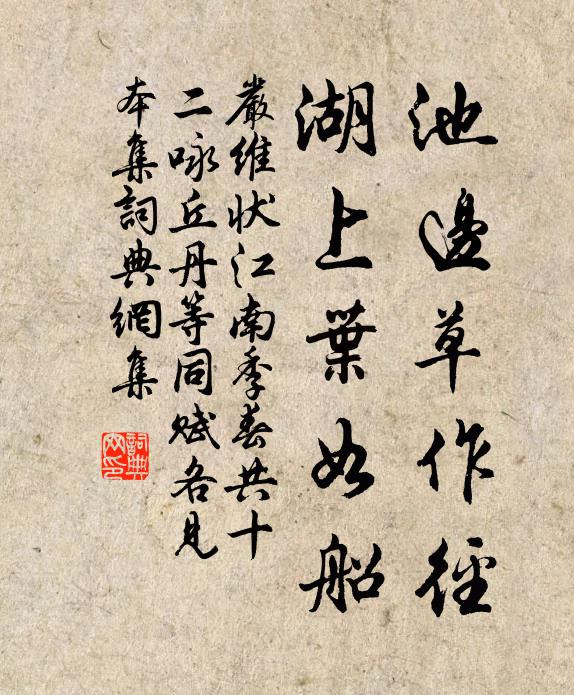 池邊草作徑
湖上葉如船
嚴維狀江南季春共十
二咏丘丹等同賦各見
本集詞典網集
詞典
网印